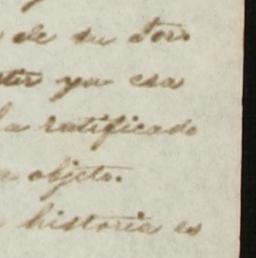 de su
ya esa
la ratificado
objeto.
historia es